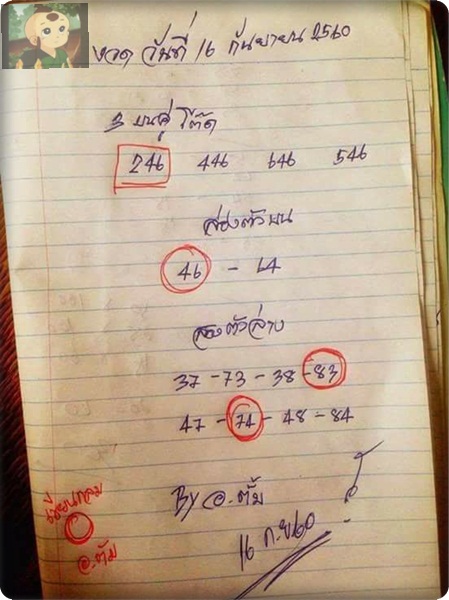 งวด วันที่ 16 กันยายน 2560
3 บนคู่ โต๊ด
246 446 646 546
สองตัวบน
46 - 64
สองตัวล่าง
37 - 73 - 38 - 83
47 - 74 - 48 - 84
By อ.ตั้ม
16 ก.ย 60
เขียนกลม
อ.ตั้ม